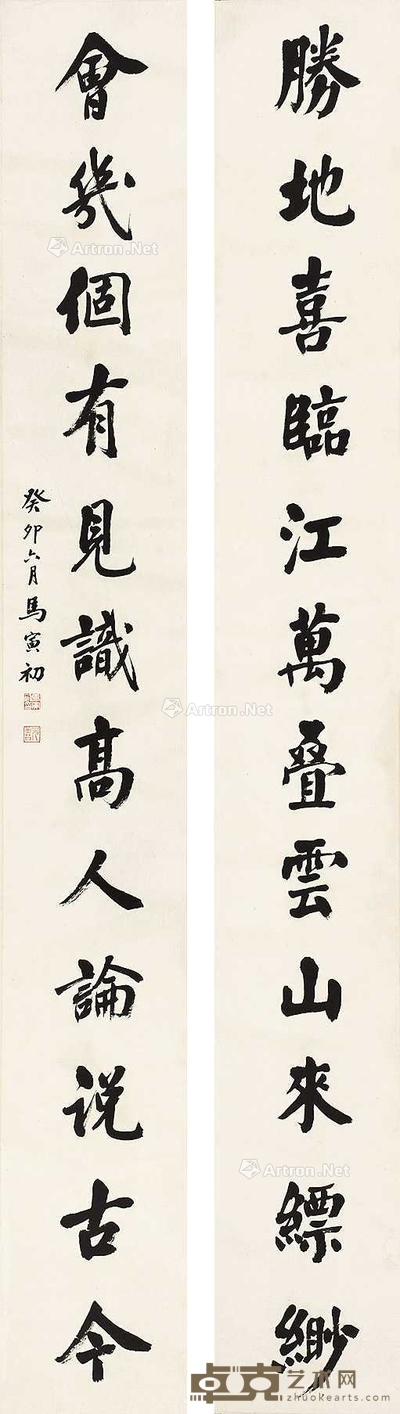 勝地喜臨江萬叠雲山來縹緲
會幾個有見識高人論说古今
癸卯六月馬寅初
Artron.Net
Artron.Net
Artron.Net
卓克艺术网
zhuokearts.com